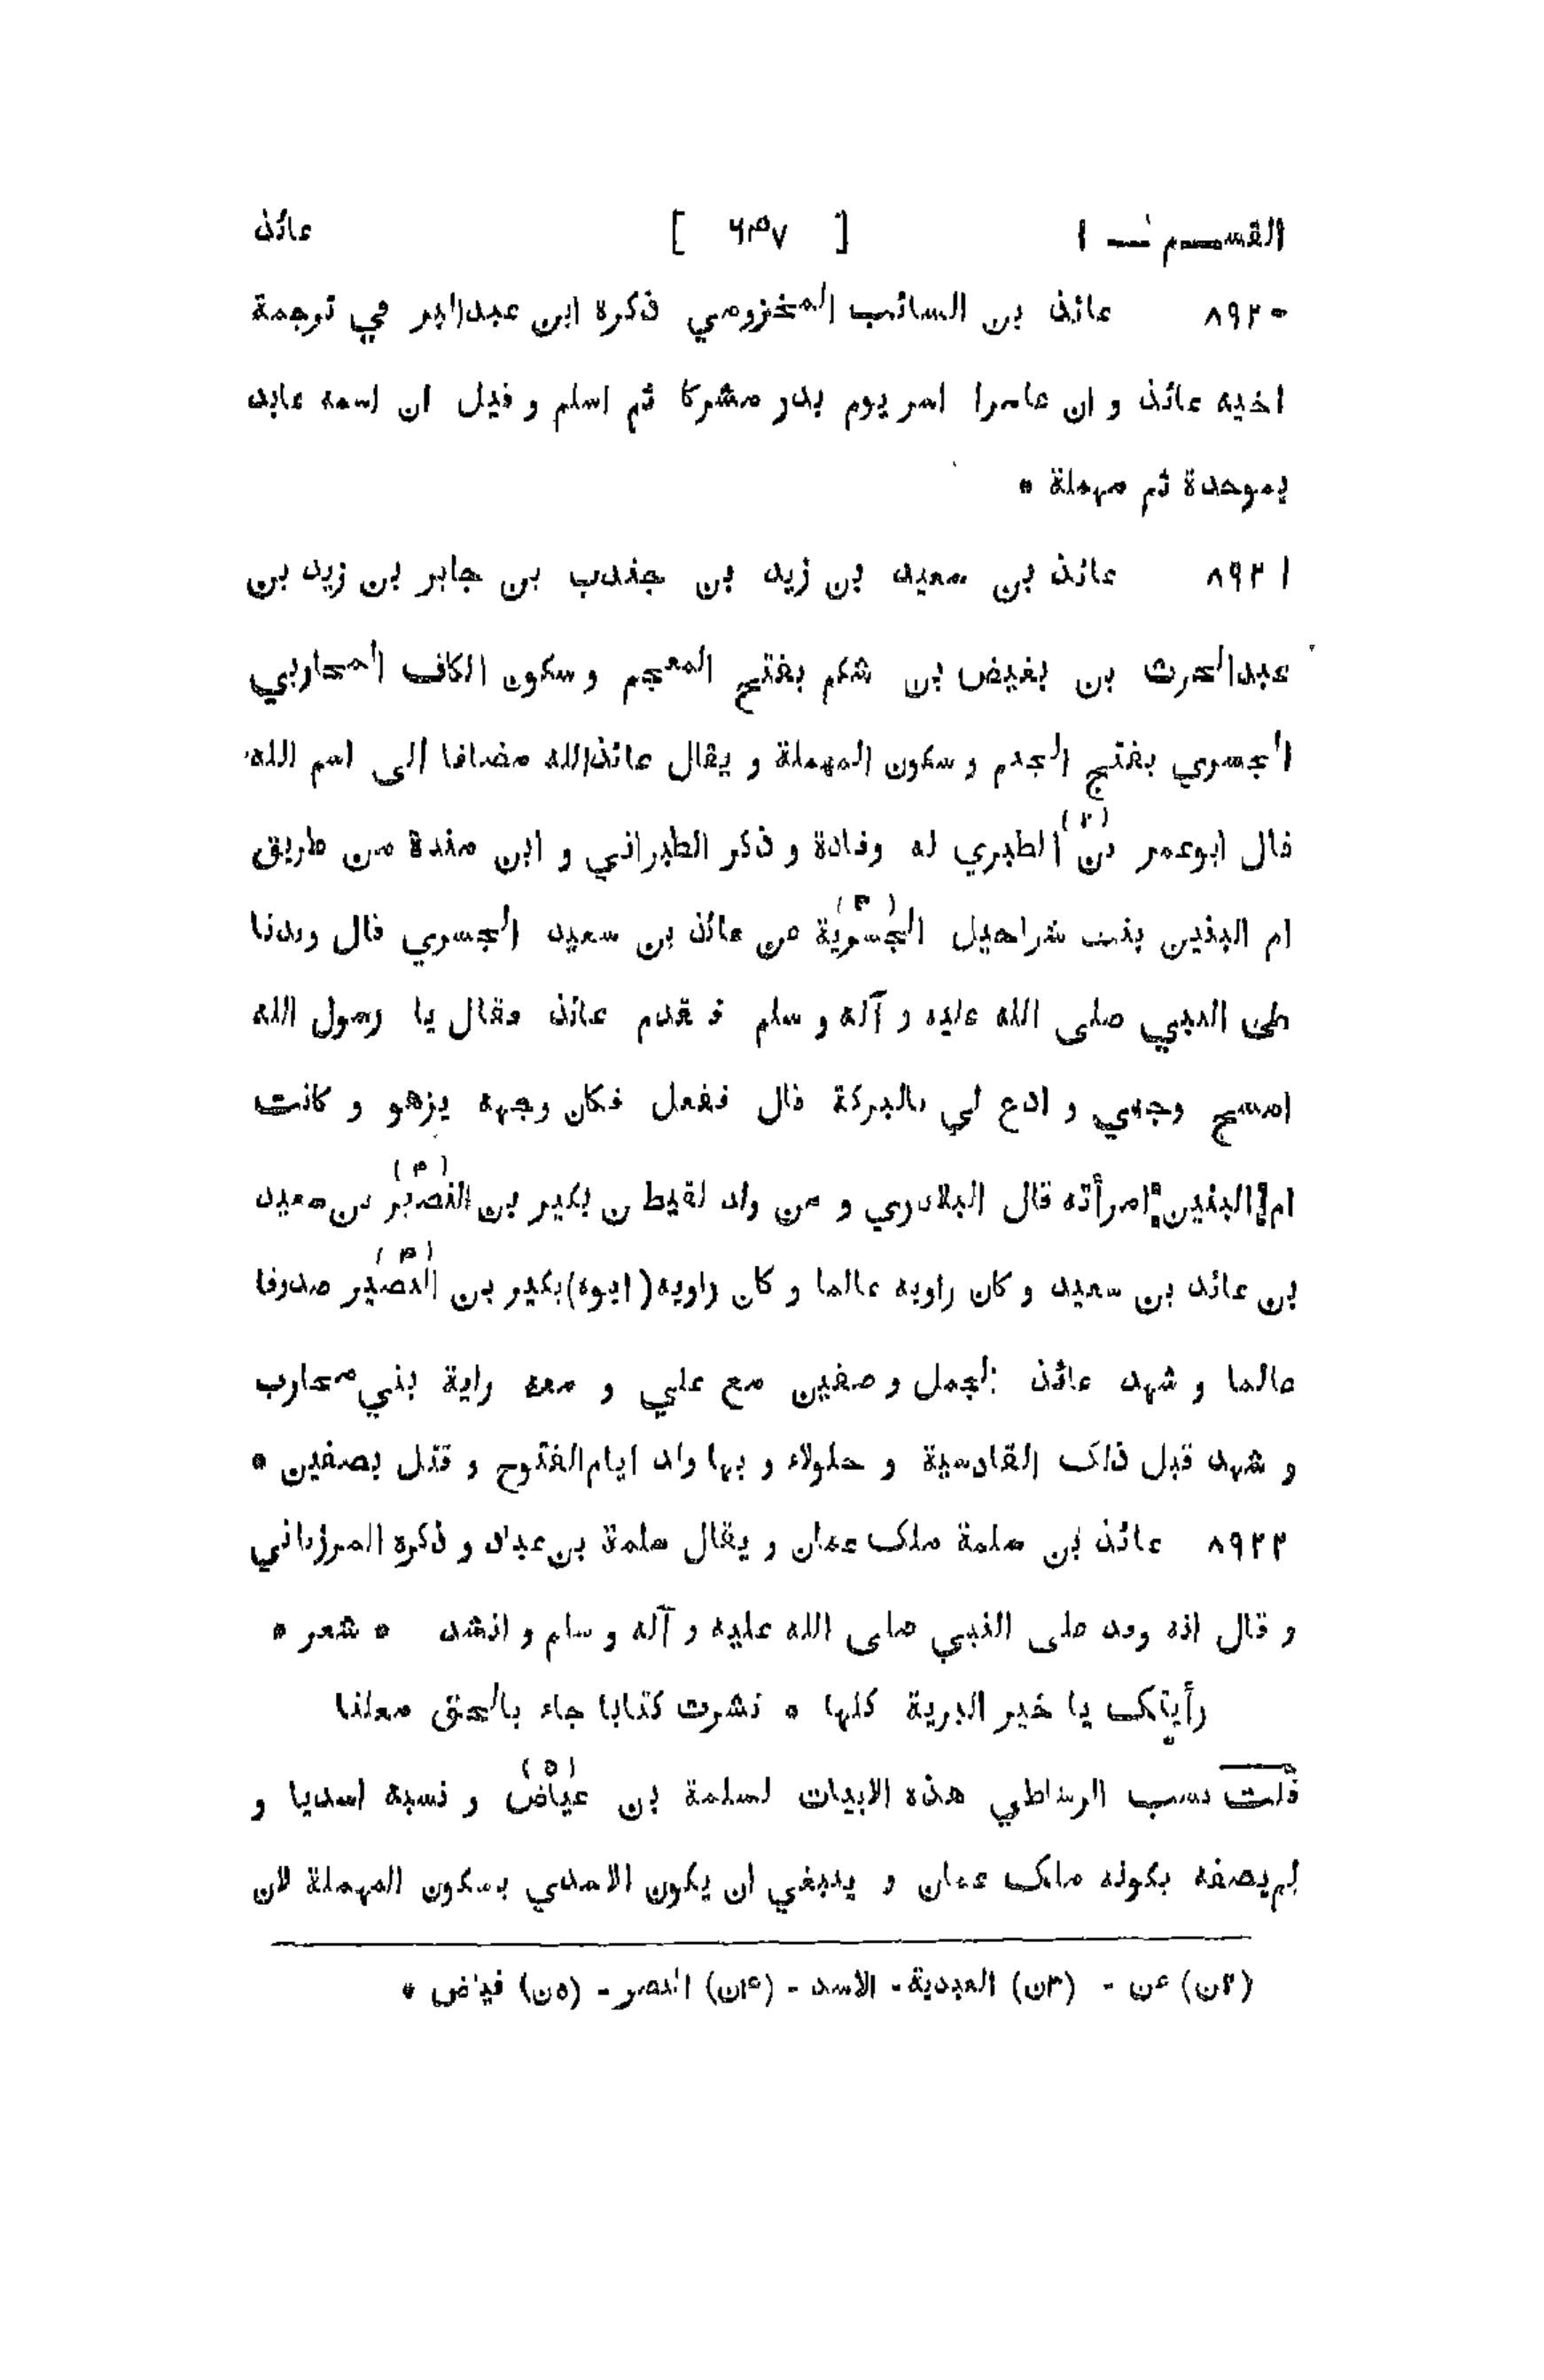 القسم — ١ [ ٦٤٧ ] عائذ
٨٩٢٠ عائذ بن السائب المخزومي ذكرة ابن عبدالبر في ترجمة
اخيه عائذ و ان عامرا اسر يوم بدر مشركا ثم اسلم و قيل ان اسمه عابد
بموحدة ثم مهملة *
٨٩٢١ عائذ بن سعيد بن زيد بن جندب بن جابر بن زيد بن
عبدالحرث بن بغيض بن شكم بفتح المعجم و سكون الكاف المحاربي
الجسري بفتح الجيم و سكون المهملة و يقال عائذالله مضافا الى اسم الله
قال ابوعمر بن (٢) الطبري له وفادة و ذكر الطبراني و ابن مندة من طريق
ام البنين بنت شراحيل الجسرية (٣) عن عائذ بن سعيد الجسري قال وفدنا
على النبي صلى الله عليه و آله و سلم فتقدم عائذ فقال يا رسول الله
امسح وجهي و ادع لي بالبركة قال ففعل فكان وجهه يزهو و كانت
ام البنين امرأته قال البلاذري و من ولد لقيط بن بكير بن النضير (٤) بن سعيد
بن عائذ بن سعيد و كان راوية عالما و كان راويه (ابوه) بكير بن النضير (٤) صدوقا
عالما و شهد عائذ الجمل و صفين مع علي و معه راية بني محارب
و شهد قبل ذلك القادسية و جلولاء و بها ولد ايام الفتوح و قتل بصفين *
٨٩٢٢ عائذ بن سلمة ملك عمان و يقال سلمة بن عباد و ذكره المرزباني
و قال انه وفد على النبي صلى الله عليه و آله و سلم و انشد * شعر *
رأيتك يا خير البرية كلها * نشرت كتابا جاء بالحق معلنا
قلت نسب الرشاطي هذه الابيات لسلمة بن عياض (٥) و نسبه اسديا و
لم يصفه بكونه ملك عمان و ينبغي ان يكون الاسدي بسكون المهملة لان
(٢ن) عن - (٣ن) العبدية - الاسد - (٤ن) النصر - (٥ن) فياض *